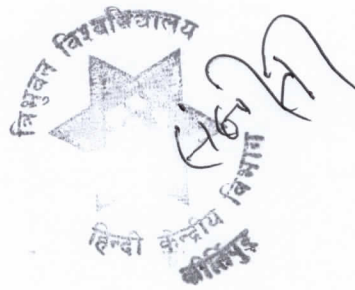 त्रिभुवन विश्वविद्यालय
हिन्दी केन्द्रीय विभाग
कीर्तिपुर